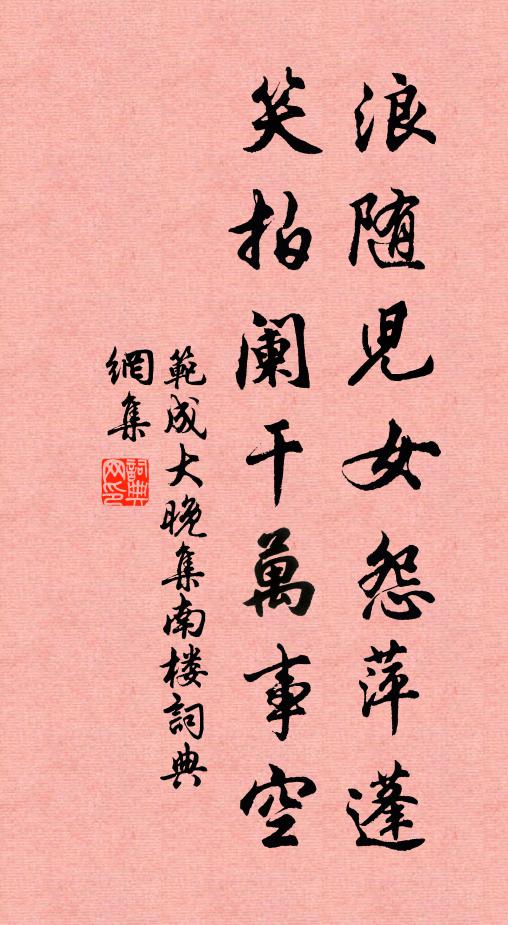 浪随兒女怨萍蓬
笑拍阑干萬事空
範成大晚集南楼詞典
網集
詞典
网印